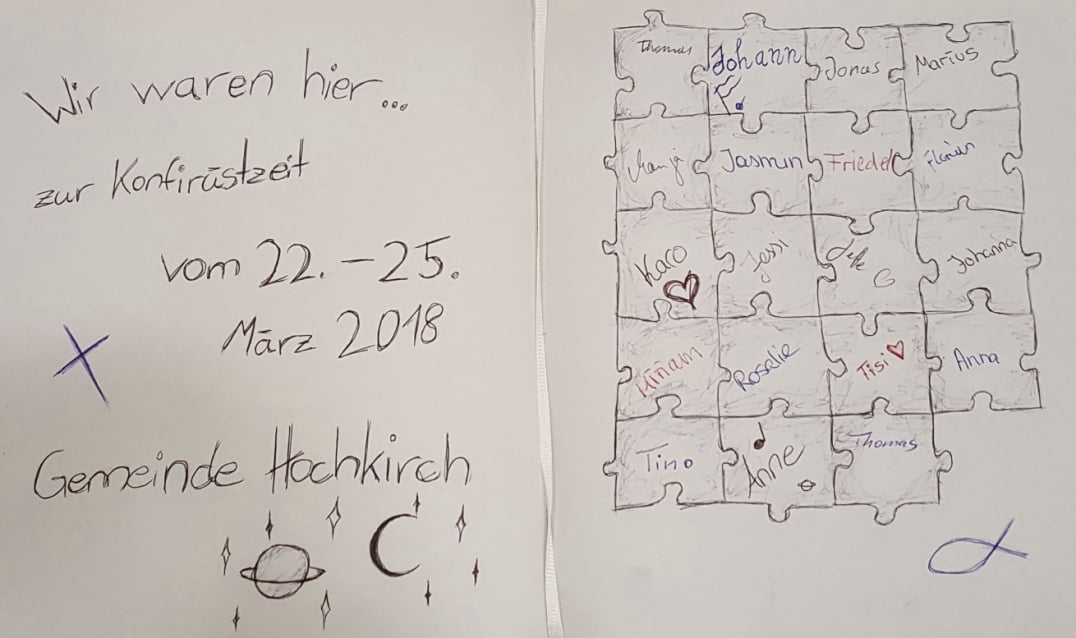 Wir waren hier...
zur Konfirüstzeit
vom 22. - 25.
März 2018
Gemeinde Hochkirch
Thomas Johann Jonas Marius
Jasmin Friedel Florian
Karo Jessi Johanna
Miriam Rosalie Tisi Anna
Tino Anne Thomas